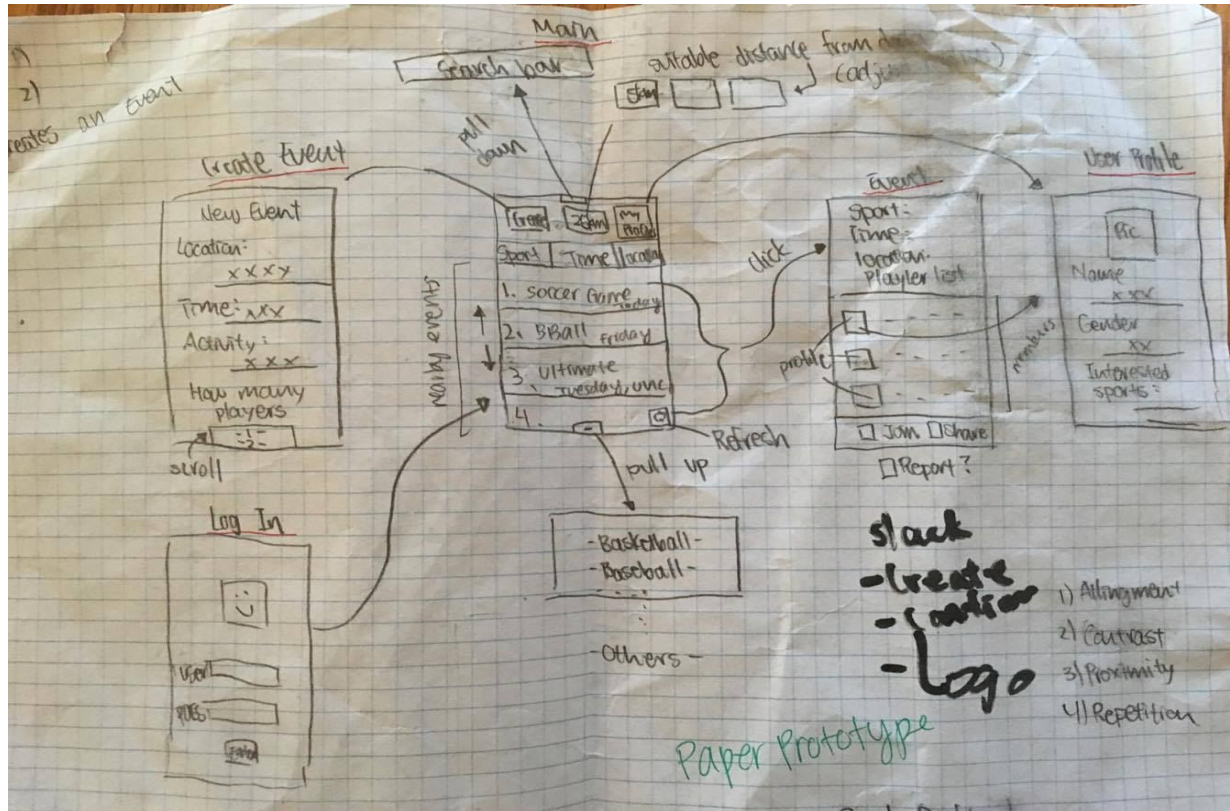 Main
Search bar
suitable distance from
5km
1)
2)
an Event
pull
down
Create Event
New Event
Location:
xxxx
Time: xxx
Activity:
xxx
How many
players
scroll
My
Sport Time
1. Soccer Game
2. BBall Friday
3. Ultimate
Tuesday, unc
4.
Refresh
pull up
click
Event
Sport:
Time:
location:
Player list
profile
members
Join Share
Report?
User Profile
Pic
Name
xxx
Gender
xx
Interested
sports:
Log In
User
-Basketball-
-Baseball-
-Others-
slack
-Create
-Logo
1) Allingment
2) Contrast
3) Proximity
4) Repetition
Paper Prototype